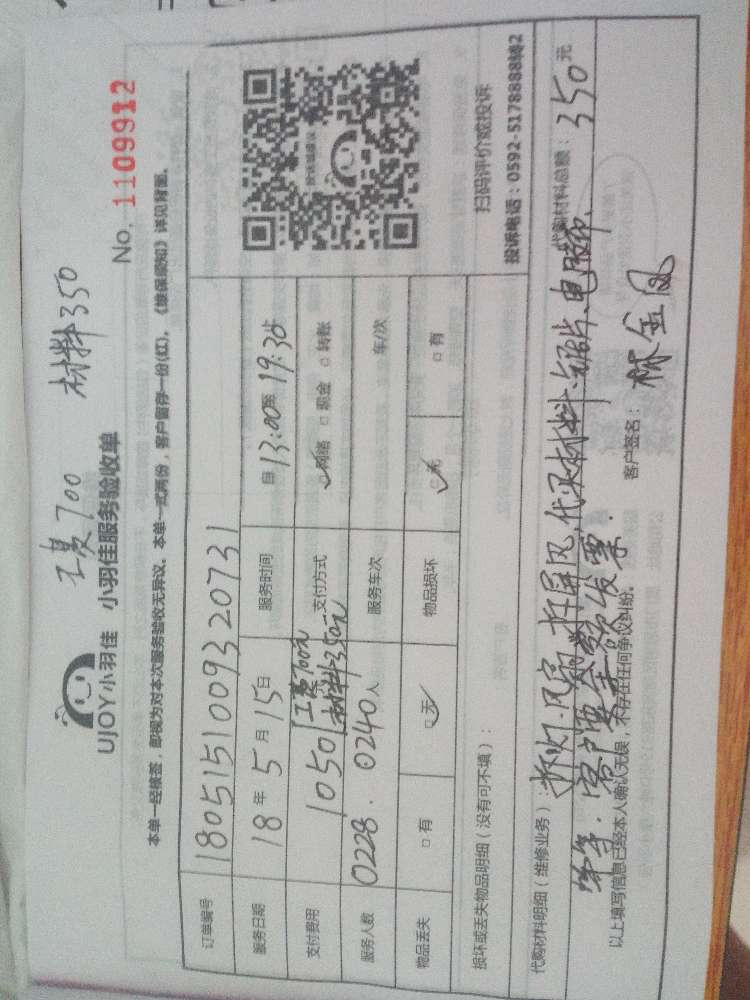 工费700 材料350
UJOY小羽佳 小羽佳服务验收单
No. 1109912
本单一经核签,即视为对本次服务验收无异议。本单一式两份,客户留存一份(红)。《维保须知》详见背面。
订单编号 180515100932073 1
服务日期 18年5月15日 服务时间 自13:00至19:30止
支付费用 1050 工费700元 材料350元 支付方式 网络 现金 转账
服务人数 0228. 0240人 服务车次 车/次
物品丢失 有 无 物品损坏 无 有
扫码评价或投诉
投诉电话:0592-5178888转2
损坏或丢失物品明细(没有可不填):
代购材料明细(维修业务):拆灯.风扇 拆屏风,代买材料:铝片、电胶布、 代购材料总额:350元
等等.客户要全额发票.
以上填写信息已经本人确认无误,不存在任何争议纠纷。 客户签名:林金凤